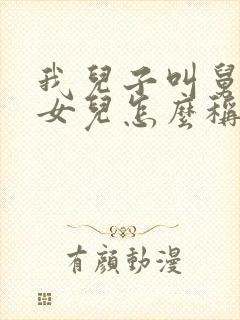 我兒子叫舅
女兒怎麼稱
有顏動漫